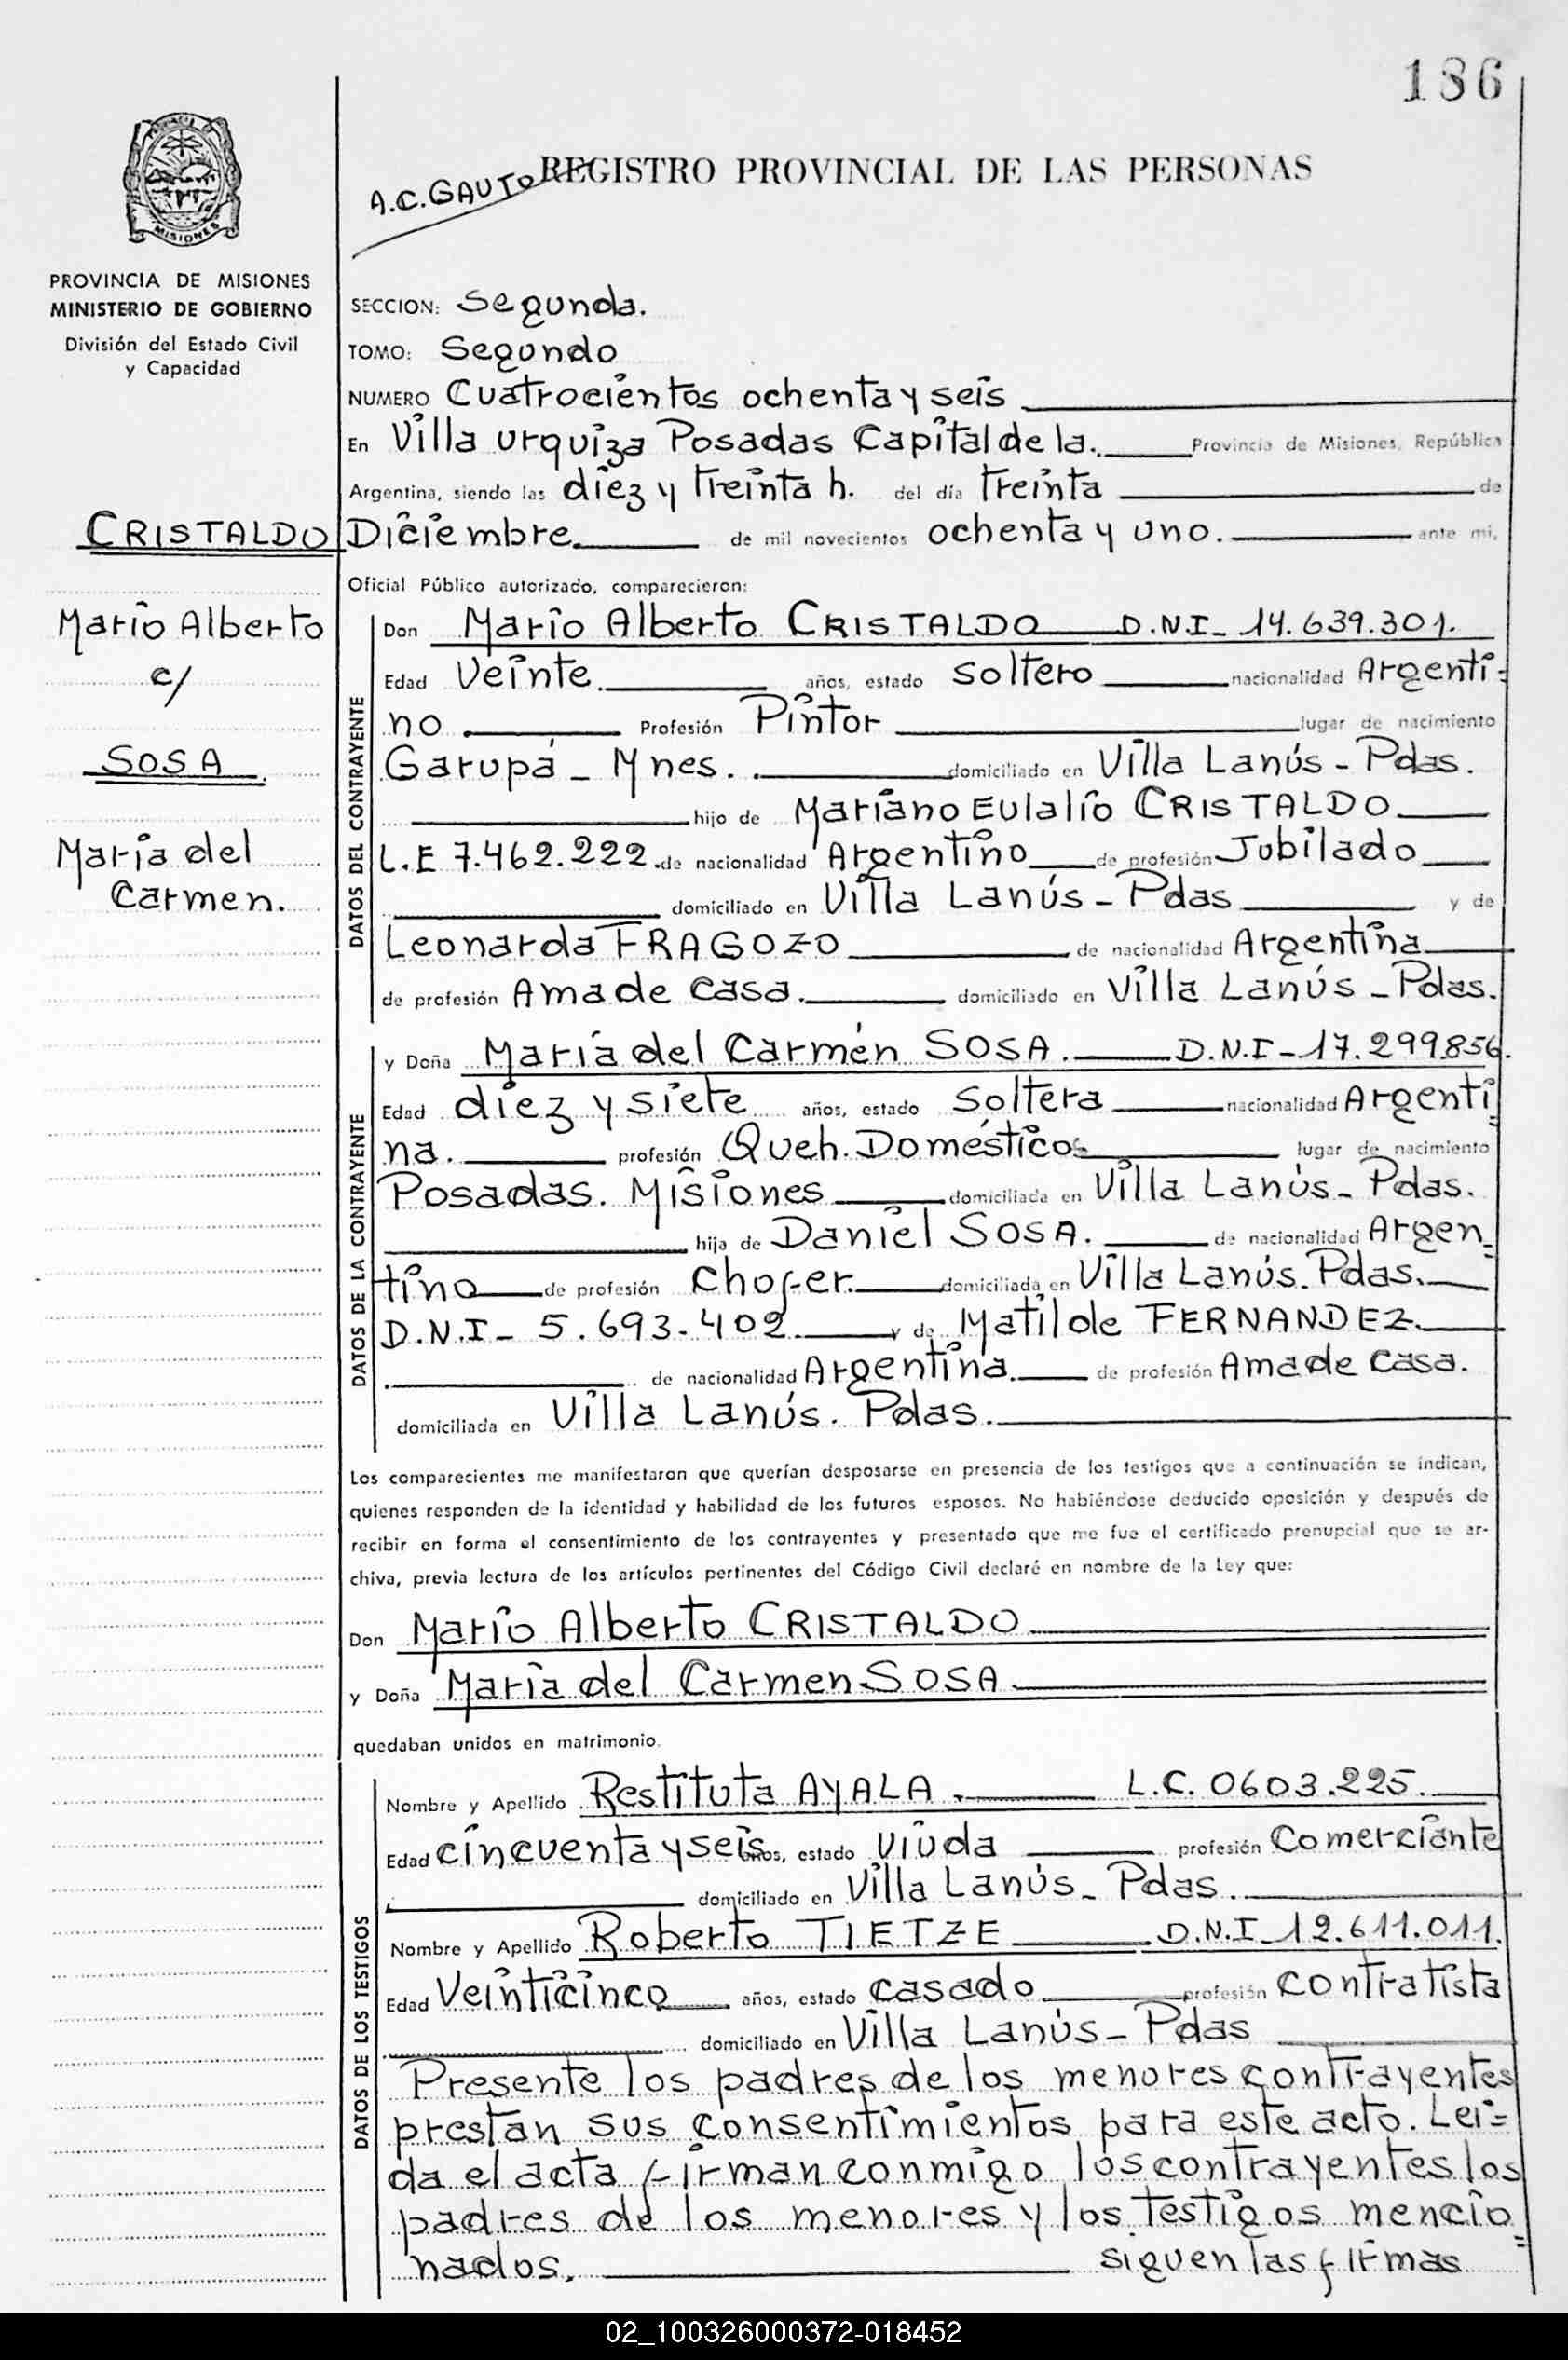 186
REGISTRO PROVINCIAL DE LAS PERSONAS
A.C. GAUTO
MISIONES
PROVINCIA DE MISIONES
MINISTERIO DE GOBIERNO
División del Estado Civil
y Capacidad
CRISTALDO
Mario Alberto
c/
SOSA
María del
Carmen.
SECCION: Segunda.
TOMO: Segundo
NUMERO Cuatrocientos ochenta y seis
En Villa Urquiza Posadas Capital de la. Provincia de Misiones, República
Argentina, siendo las diez y treinta h. del día treinta de
Diciembre. de mil novecientos ochenta y uno. ante mi,
Oficial Público autorizado, comparecieron:
DATOS DEL CONTRAYENTE
Don Mario Alberto CRISTALDO D.N.I - 14.639.301.
Edad Veinte. años, estado soltero nacionalidad Argenti=
no. Profesión Pintor lugar de nacimiento
Garupá - Mnes. domiciliado en Villa Lanús - Pdas.
hijo de Mariano Eulalio CRISTALDO
L.E 7.462.222. de nacionalidad Argentino de profesión Jubilado
domiciliado en Villa Lanús - Pdas y de
Leonarda FRAGOZO de nacionalidad Argentina
de profesión Ama de Casa. domiciliado en Villa Lanús - Pdas.
DATOS DE LA CONTRAYENTE
y Doña María del Carmen SOSA. D.N.I - 17.299.856.
Edad diez y siete años, estado soltera nacionalidad Argenti=
na. profesión Queh. Domésticos lugar de nacimiento
Posadas. Misiones domiciliada en Villa Lanús - Pdas.
hija de Daniel SOSA. de nacionalidad Argen=
tino de profesión Chofer. domiciliada en Villa Lanús. Pdas.
D.N.I - 5.693.402. y de Matilde FERNANDEZ.
de nacionalidad Argentina. de profesión Ama de Casa.
domiciliada en Villa Lanús. Pdas.
Los comparecientes me manifestaron que querían desposarse en presencia de los testigos que a continuación se indican,
quienes responden de la identidad y habilidad de los futuros esposos. No habiéndose deducido oposición y después de
recibir en forma el consentimiento de los contrayentes y presentado que me fue el certificado prenupcial que se ar-
chiva, previa lectura de los artículos pertinentes del Código Civil declaré en nombre de la Ley que:
Don Mario Alberto CRISTALDO
y Doña María del Carmen SOSA.
quedaban unidos en matrimonio.
DATOS DE LOS TESTIGOS
Nombre y Apellido Restituta AYALA. L.C. 0603.225.
Edad cincuenta y seis años, estado viuda profesión Comerciante
domiciliado en Villa Lanús - Pdas.
Nombre y Apellido Roberto TIETZE D.N.I - 12.611.011.
Edad Veinticinco años, estado casado profesión contratista
domiciliado en Villa Lanús - Pdas
Presente los padres de los menores contrayentes
prestan sus consentimientos para este acto. Leí=
da el acta firman conmigo los contrayentes los
padres de los menores y los testigos mencio=
nados. siguen las firmas
02_100326000372-018452